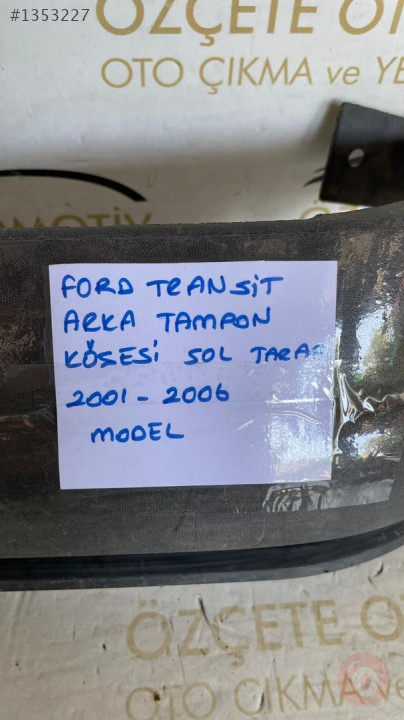 #1353227
ÖZÇETE OT
OTO ÇIKMA ve YE
OMOTİV
FORD TRANSİT
ARKA TAMPON
KÖŞESİ SOL TARAF
2001 - 2006
MODEL
ÖZÇETE OT
OTO ÇIKMA ve